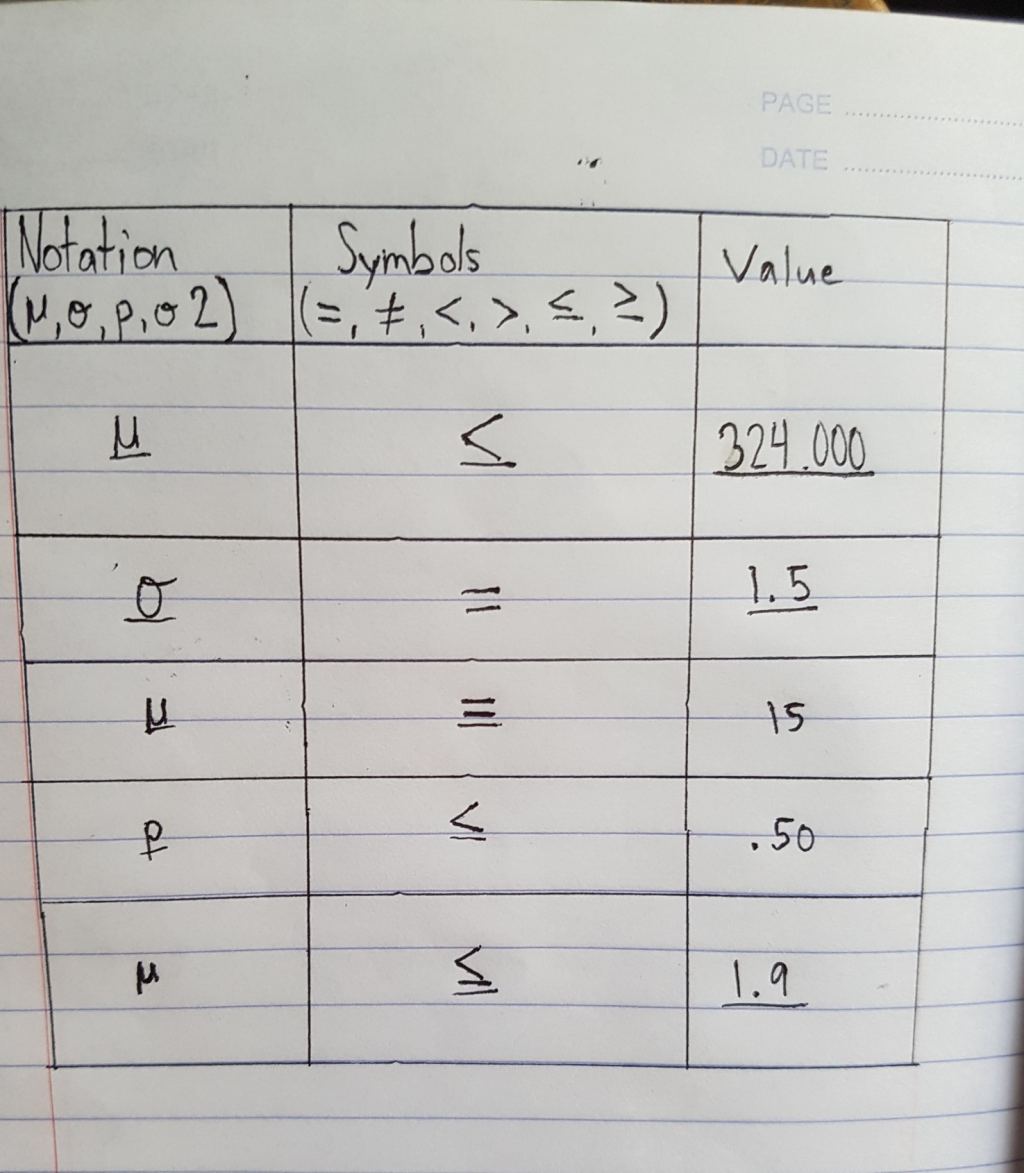 PAGE
DATE
Notation Symbols Value
(μ, σ, p, σ 2) (=, ≠, <, >, ≤, ≥)
μ ≤ 324.000
σ = 1.5
μ = 15
p < .50
μ ≤ 1.9